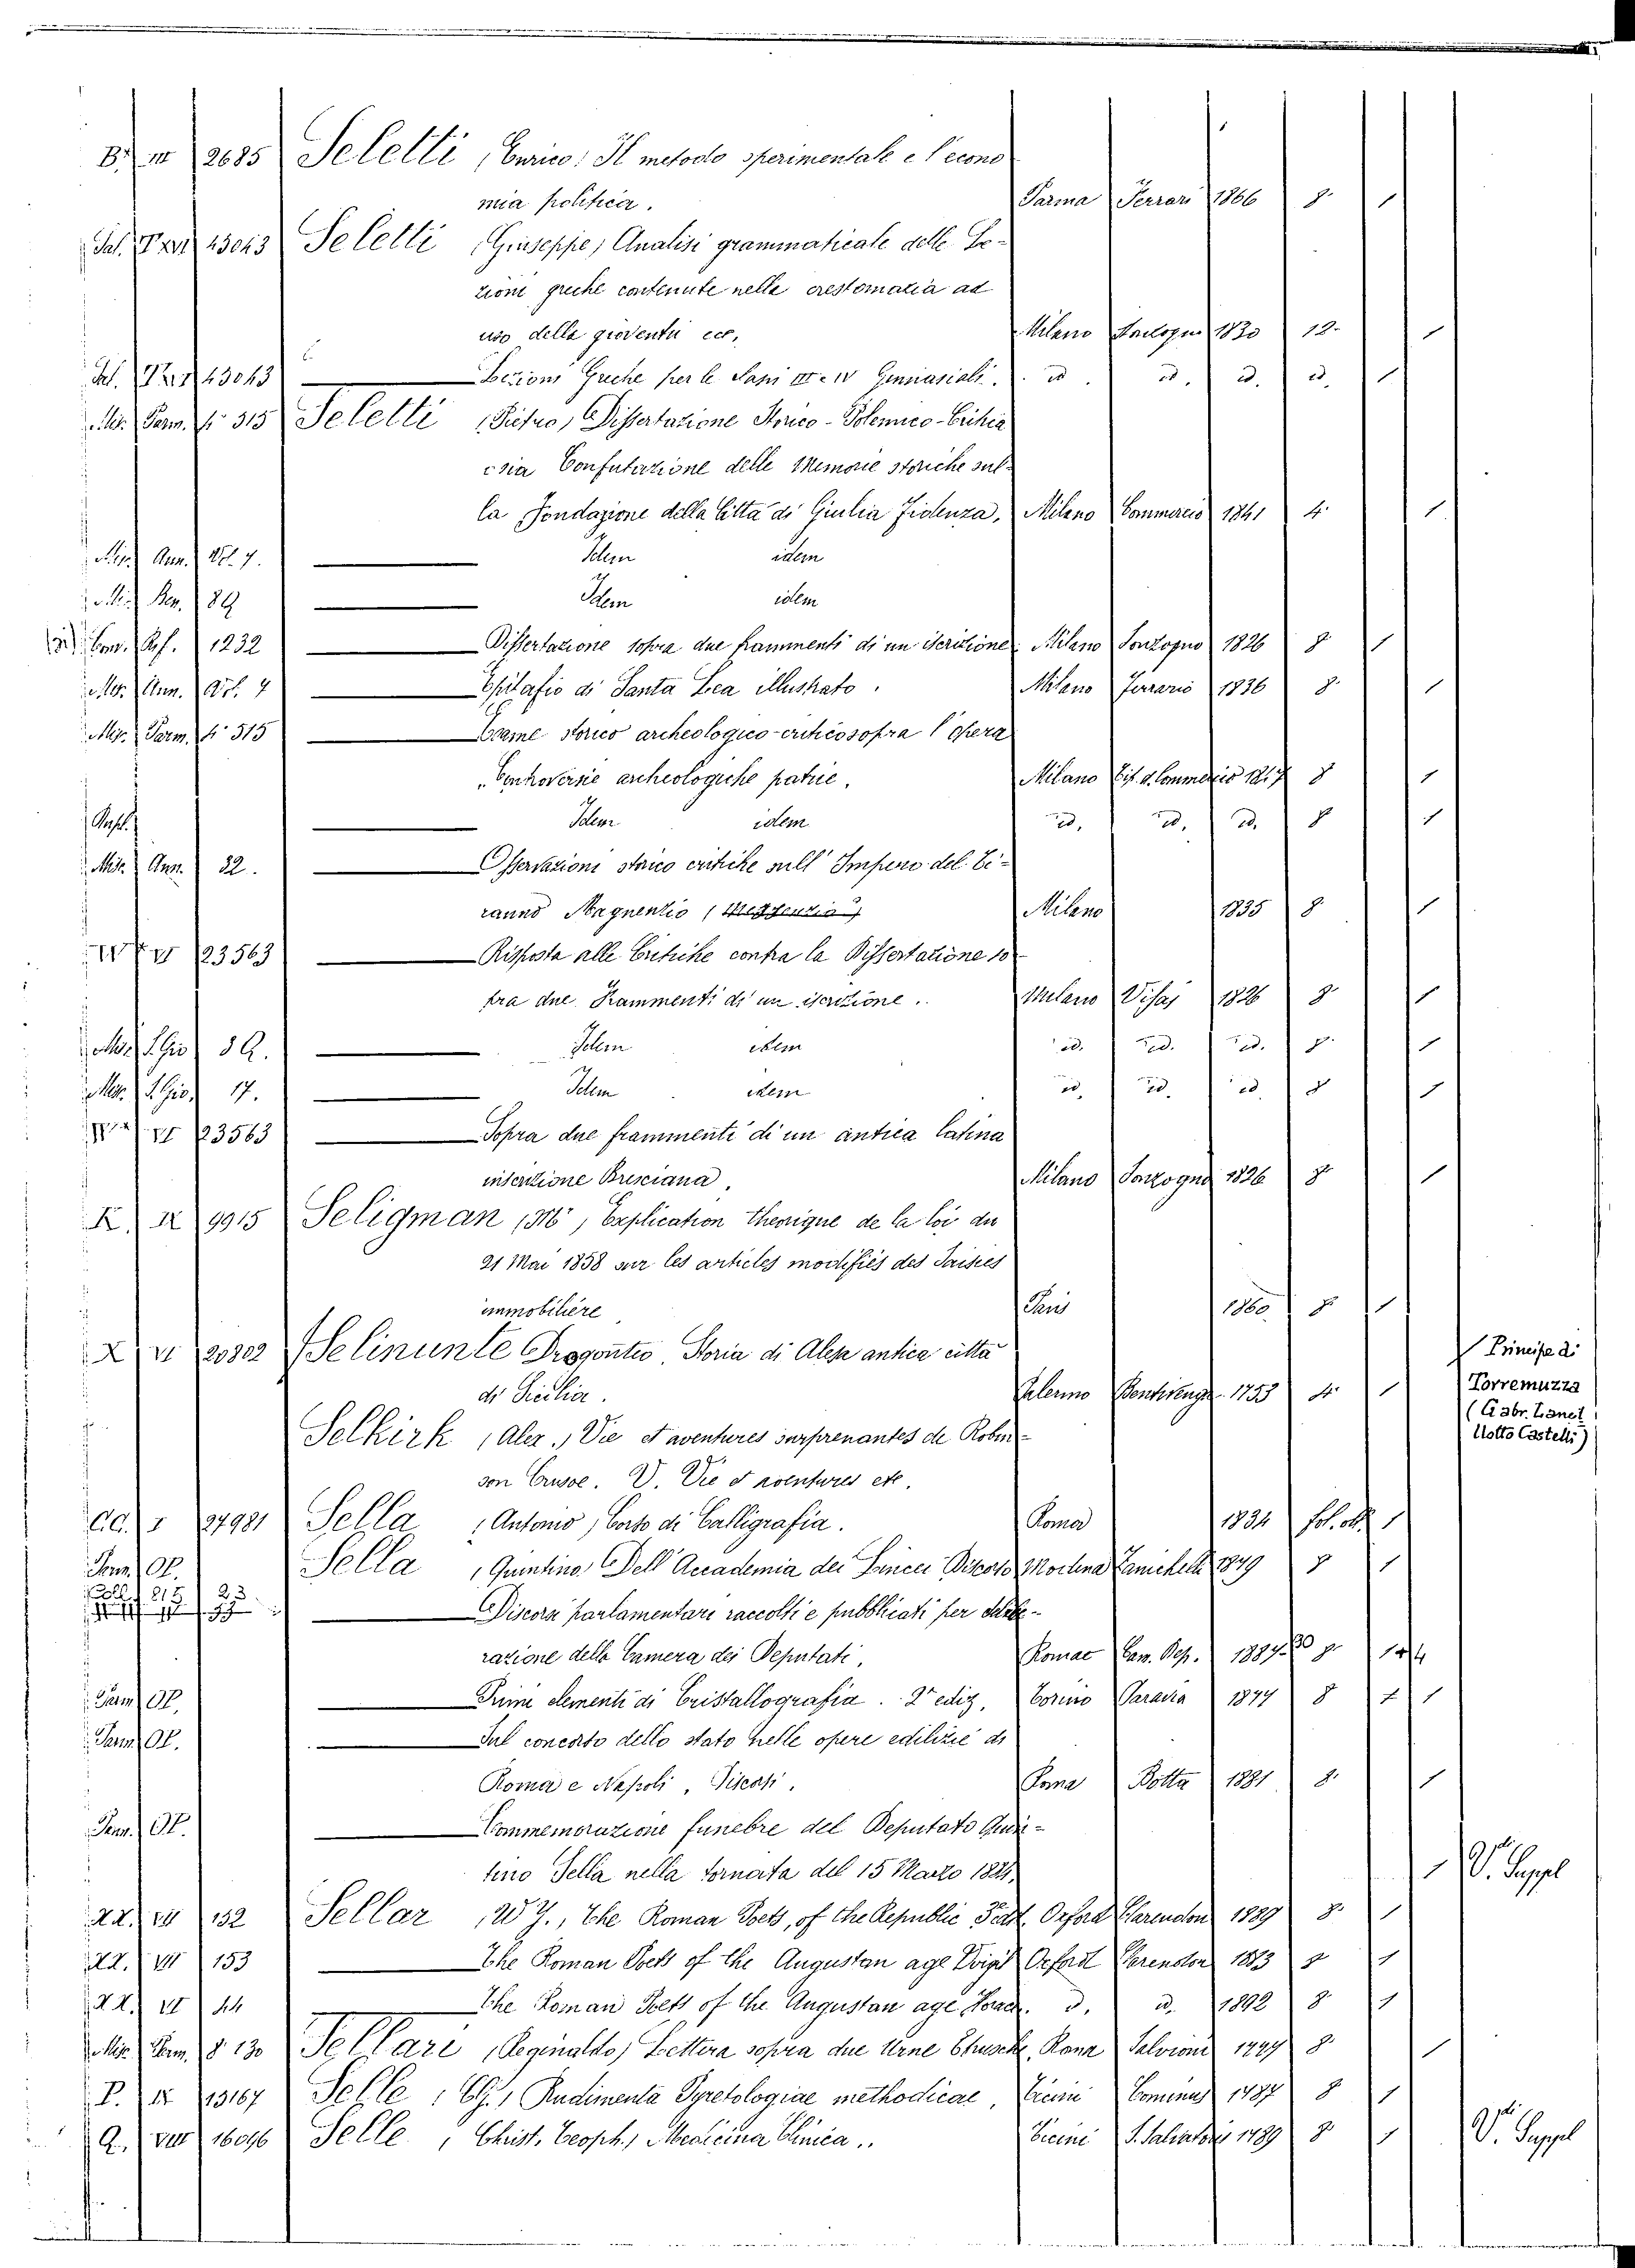 B. III 2685 Seletti (Enrico) Il metodo sperimentale e l'econo
mia politica. Parma Ferrari 1866 8. 1
Sal. 43043 Seletti (Giuseppe) Analisi grammaticale delle Le-
zioni greche contenute nella crestomatia ad
uso della gioventù ecc. Milano 1830 12. 1
Sal. 43043 — Lezioni Greche per le Sani III e IV Ginnasiali. id. id. id. id. 1
Mis. Parm. fo 315 Seletti (Pietro) Dissertazione Storico-Polemico-Critica
ossia Confutazione delle Memorie storiche sul-
la Fondazione della Città di Giulia Fidenza. Milano Commercio 1841 4. 1
Mis. Ann. Vol. 7. — Idem idem
Mis. Ber. 89 — Idem idem
1232 — Dissertazione sopra due frammenti di un iscrizione. Milano Sonzogno 1826 8 1
Mis. Ann. Vol. 4 — Epitafio di Santa Lea illustrato. Milano Ferrario 1836 8. 1
Mis. Parm. fo 315 — Esame storico archeologico-critico sopra l'opera
"Controversie archeologiche patrie. Milano Tip. d. Commercio 1847 8 1
— Idem idem id. id. id. 8 1
Mis. Ann. 22. — Osservazioni storico critiche sull' Impero del Ti-
ranno Magnentio Milano 1835 8 1
23563 — Risposta alle Critiche contra la Dissertazione so
pra due Frammenti di un iscrizione. Milano Visaj 1826 8 1
Mis. S. Gio 39. — Idem idem id. id. id. 8. 1
Mis. S. Gio. 17. — Idem idem id. id. id. 8 1
VI 23563 — Sopra due frammenti di un antica latina
inscrizione Bresciana. Milano Sonzogno 1826 8 1
K. IX 9915 Seligman (M.) Explication théorique de la loi du
21 Mai 1858 sur les articles modifiés des Saisies
immobilière Paris 1860 8 1
X VI 20302 Selinunte Drogonteo. Storia di Alesa antica città
di Sicilia. Palermo Bentivenga 1753 4. 1
Principe di
Torremuzza
(Gabr. Lancil
Lotto Castelli)
Selkirk (Alex.) Vie et aventures surprenantes de Robin-
son Crusoe. V. Vie et aventures etc.
CC. I 27981 Sella (Antonio) Corso di Calligrafia. Roma 1834 fol. obl. 1
Parm. Op. Sella (Quintino) Dell' Accademia dei Lincei Discorso Modena Zanichelli 1879 8 1
— Discorsi parlamentari raccolti e pubblicati per delibe-
razione della Camera dei Deputati. Romae Cam. Dep. 1887-90 8
Parm. Op. — Primi elementi di Cristallografia. 2a ediz. Torino Paravia 1877 8 1
Parm. Op. — Sul concorso dello stato nelle opere edilizie di
Roma e Napoli. Discorsi. Roma Botta 1881 8. 1
Parm. Op. — Commemorazione funebre del Deputato Quin-
tino Sella nella tornata del 15 Marzo 1884. 1 V. Suppl
AA. VII 152 Sellar (W Y.) The Roman Poets, of the Republic Oxford Clarendon 1889 8. 1
AA. VII 153 — The Roman Poets of the Augustan age Virgil Oxford Clarendon 1883 8 1
AA. VI 44 The Roman Poets of the Augustan age Horace. d. d. 1892 8 1
Mis. Parm. 8o 130 Sellari (Reginaldo) Lettera sopra due Urne Etrusche. Roma Salvioni 8. 1
P. IX 13167 Selle (C.G.) Rudimenta Pyretologiae methodicae. Ticini Cominus 1787 8 1
Q. VIII 16046 Selle (Christ. Teoph.) Medicina Clinica. Ticini S. Salvatoris 1789 8 1 V. Suppl